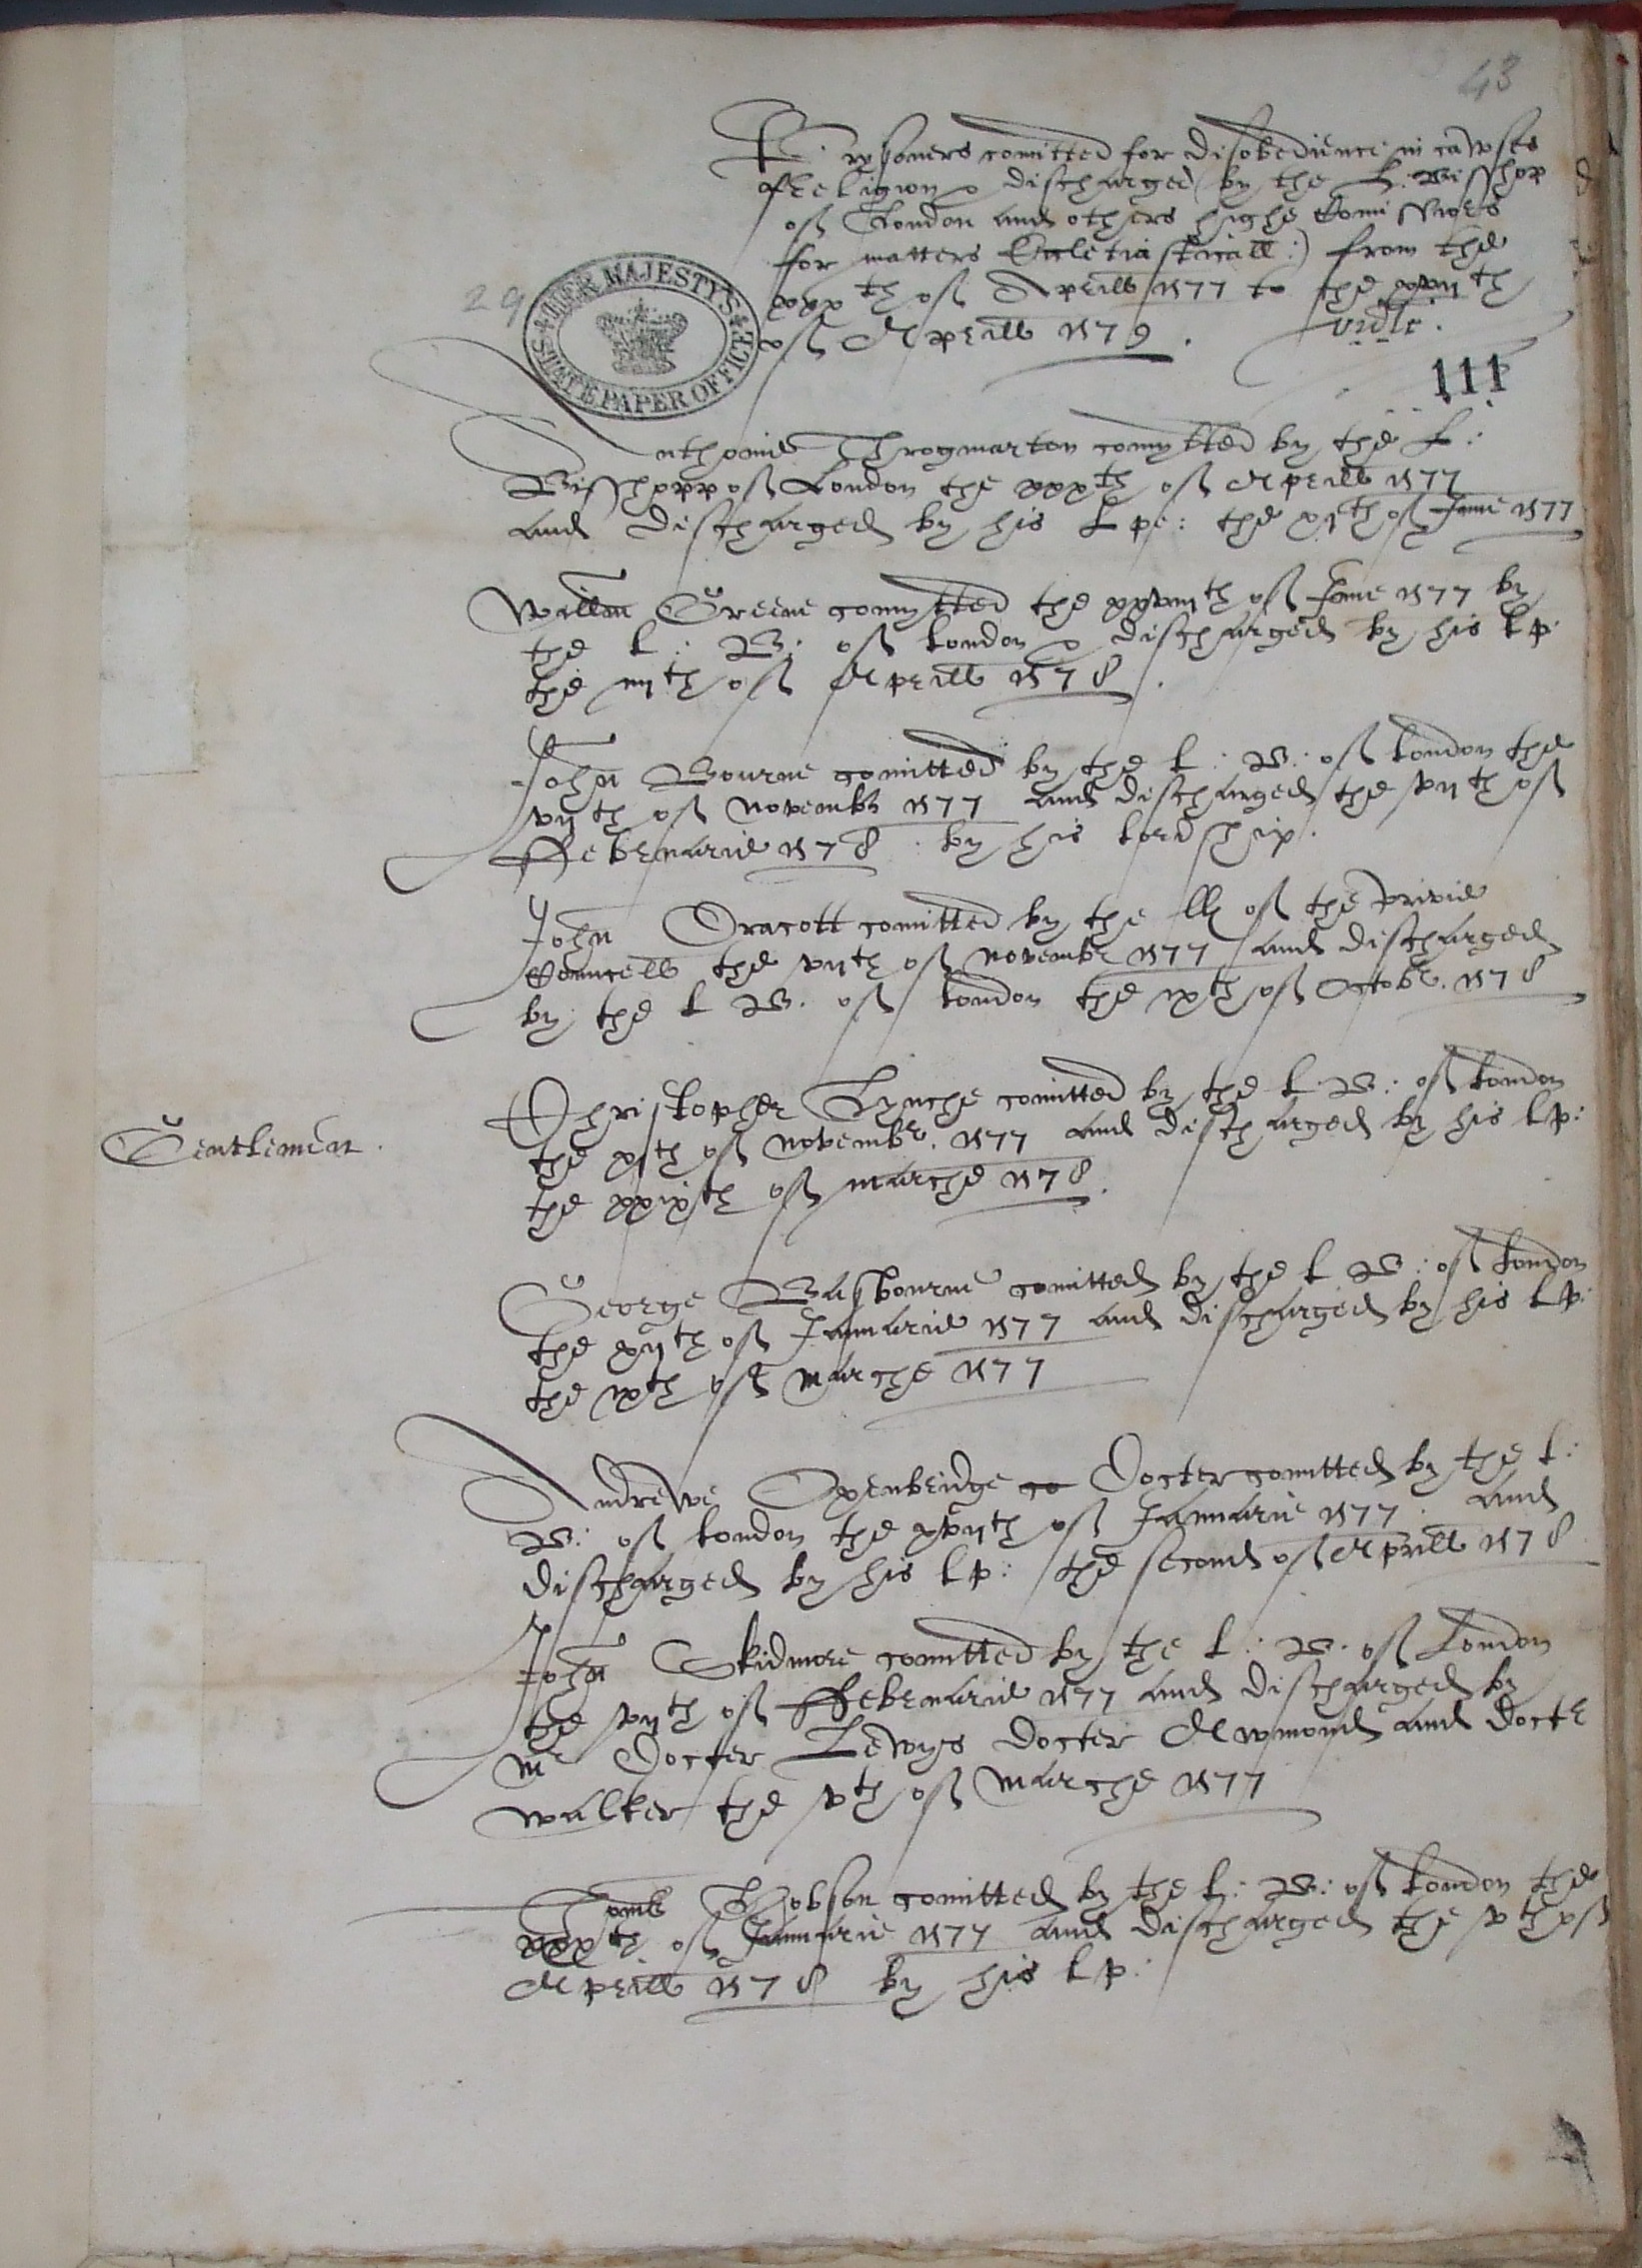 43
Prysoners comitted for disobedience in cawses
of Religion & discharged (by the L: Bisshop
of London and others highe Comissioners
for matters Ecclesiasticall:) from the
xxxth of Aprill 1577 to the xxvijth
of Aprill 1579. vidlt.
29
HER MAJESTY'S STATE PAPER OFFICE
111
Anthonie Throgmarton comytted by the L:
Bisshopp of London the xxxth of Aprill 1577
and discharged by his Lpe: the xjth of June 1577
Willm Greene comytted the xxviijth of June 1577 by
the L: B: of London & discharged by his Lp:
the iijth of Aprill 1578.
John Bourne comitted by the L: B: of London the
vijth of Novembr 1577 and discharged the vijth of
Februarie 1578 by his Lordship.
John Dracott comitted by the LL of the Privie
Councell the vijth of Novembr 1577 and discharged
by the L B. of London the ixth of Octobr. 1578
Gentlemen.
Christopher Lynche comitted by the L B: of London
the xjth of Novembr. 1577 and discharged by his Lp:
the xxixth of Marche 1578.
George Basbourne comitted by the L B: of London
the xijth of Januarie 1577 and discharged by his Lp:
the ixth of Marche 1577
Andrewe Oxenbridge co Docter comitted by the L:
B: of London the xvijth of Januarie 1577. and
discharged by his Lp: the second of Aprill 1578
John Skidmore comitted by the L: B. of London
the vijth of Februarie 1577 and discharged by
Mr Docter Lewys Docter Awmond and Doctr
Walker the vth of Marche 1577
Hobson comitted by the L: B: of London the
xxxth of Januarie 1577 and discharged the vth of
Aprill 1578 by his Lp: